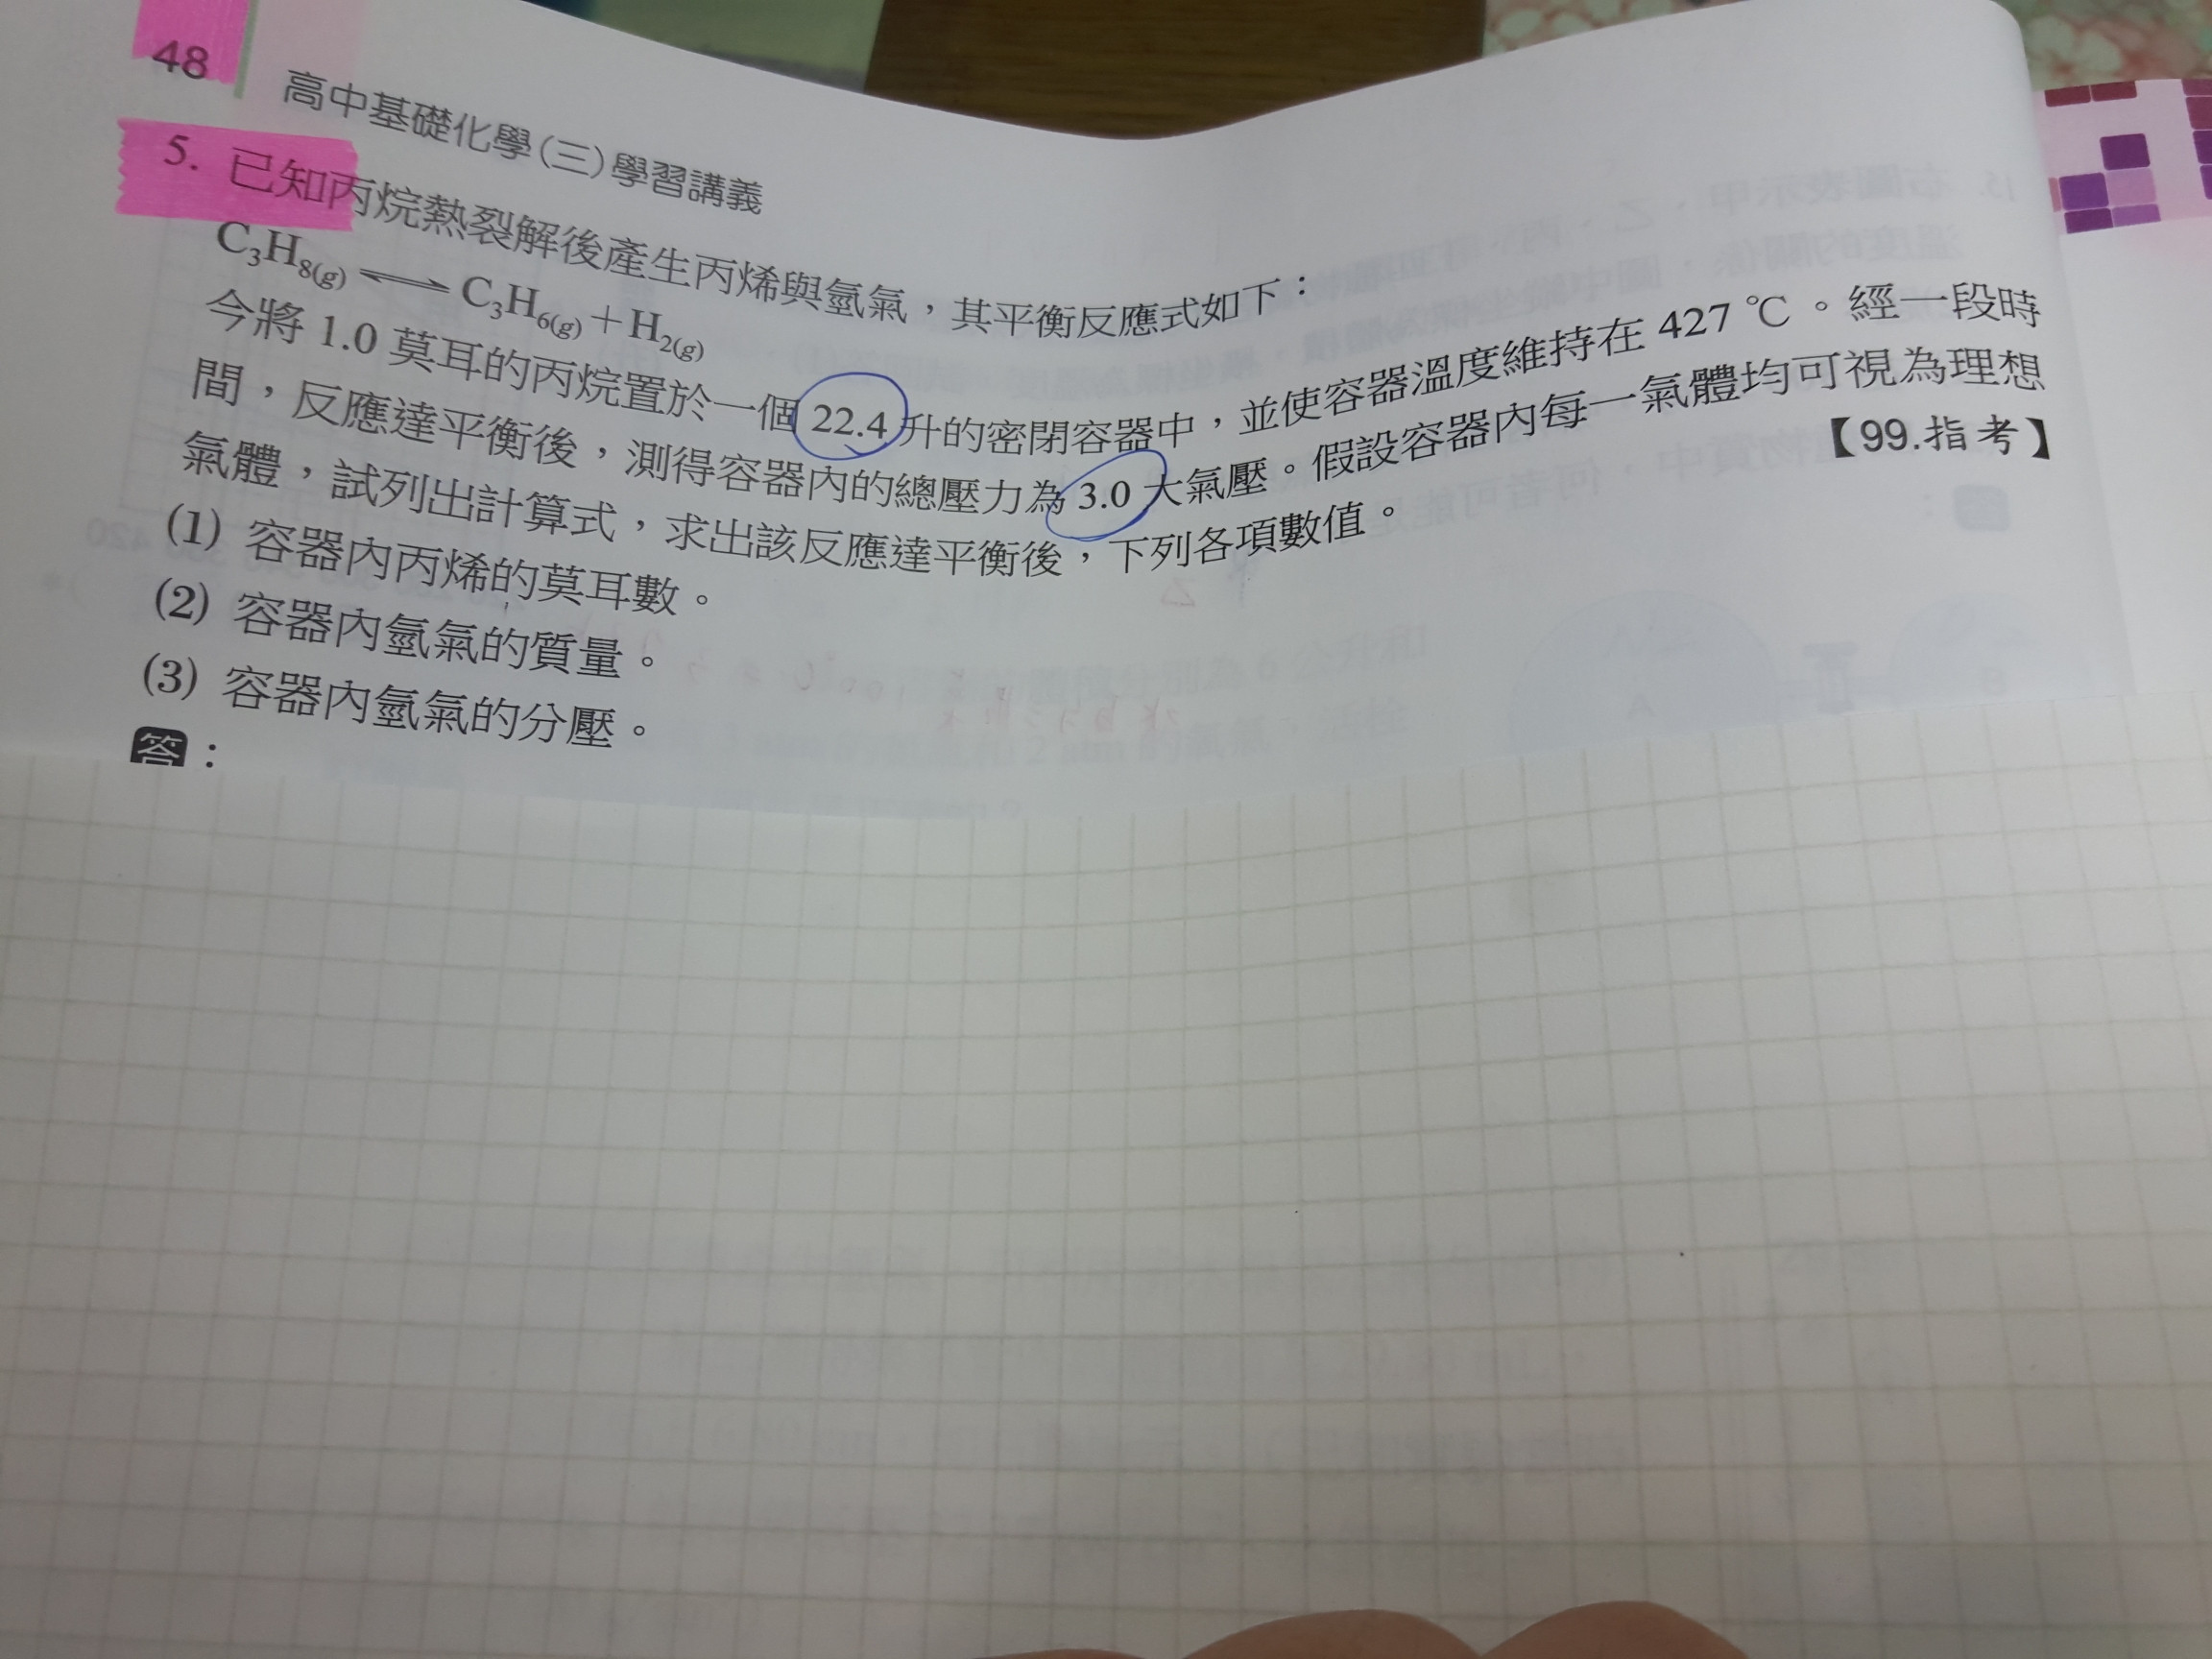 48
高中基礎化學(三)學習講義
5. 已知丙烷熱裂解後產生丙烯與氫氣，其平衡反應式如下：
C₃H₈(g) ⇌ C₃H₆(g)＋H₂(g)
今將 1.0 莫耳的丙烷置於一個 22.4 升的密閉容器中，並使容器溫度維持在 427 ℃。經一段時
間，反應達平衡後，測得容器內的總壓力為 3.0 大氣壓。假設容器內每一氣體均可視為理想
氣體，試列出計算式，求出該反應達平衡後，下列各項數值。
【99.指考】
(1) 容器內丙烯的莫耳數。
(2) 容器內氫氣的質量。
(3) 容器內氫氣的分壓。
答：